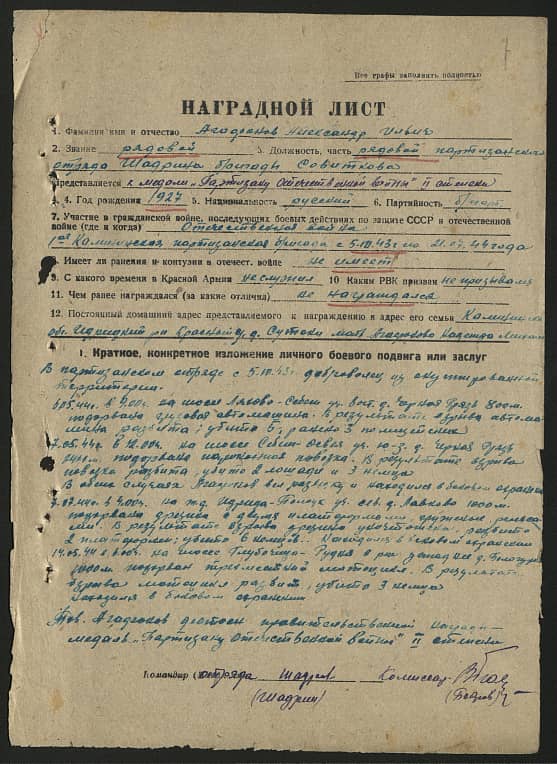 Все графы заполнить полностью
НАГРАДНОЙ ЛИСТ
1. Фамилия имя и отчество Агафонов Александр Ильич
2. Звание рядовой 3. Должность, часть рядовой партизанского
отряда Шадрина бригады
представляется к медали „Партизану Отечественной войны" II степени
4. Год рождения 1927 5. Национальность русский 6. Партийность б/парт.
7. Участие в гражданской войне, последующих боевых действиях по защите СССР и отечественной
войне (где и когда) Отечественная война
1ая Калининская партизанская бригада с 5.10.43г по 21.07.44 года
8. Имеет ли ранения и контузии в отечест. войне не имеет
9. С какого времени в Красной Армии не служил 10 Каким РВК призван не призывался
11. Чем ранее награждался (за какие отличия) не награждался
12. Постоянный домашний адрес представляемого к награждению и адрес его семьи Калининская
обл. Идрицкий р-н Красной д. Сутоки мать Надежда
I. Краткое, конкретное изложение личного боевого подвига или заслуг
В партизанском отряде с 5.10.43г. доброволец из оккупированной
территории.
6.05.44г. в 9.00г. на шоссе Себеж Черная Грязь 800м.
подорвана грузовая автомашина. В результате взрыва автома
шина разбита; убито 5; ранено 3
7.05.44г. в 12.00г. на шоссе Себеж ю-з. д. Черная Грязь
подорвана пароконная повозка. В результате взрыва
повозка разбита, убито 2 лошади и 3 немца
В обоих случаях Агафонов вел разведку и находился в боковом охранении
на ж.д. Идрица-Полоцк д. 100м.
подорвана дрезина с двумя платформами груженые рельса
ми. В результате взрыва дрезина уничтожена, разбито
2 платформы; убито 6 немцев. Находился в боковом охранении
14.05.44 в на шоссе западнее д.
подорван мотоцикл. В результате
взрыва мотоцикл разбит, убито 3 немца
Находился в боковом охранении
Тов. Агафонов достоин правительственной награды-
медаль „Партизану Отечественной Войны" II степени
Командир отряда Шадрин Комиссар
(Шадрин)